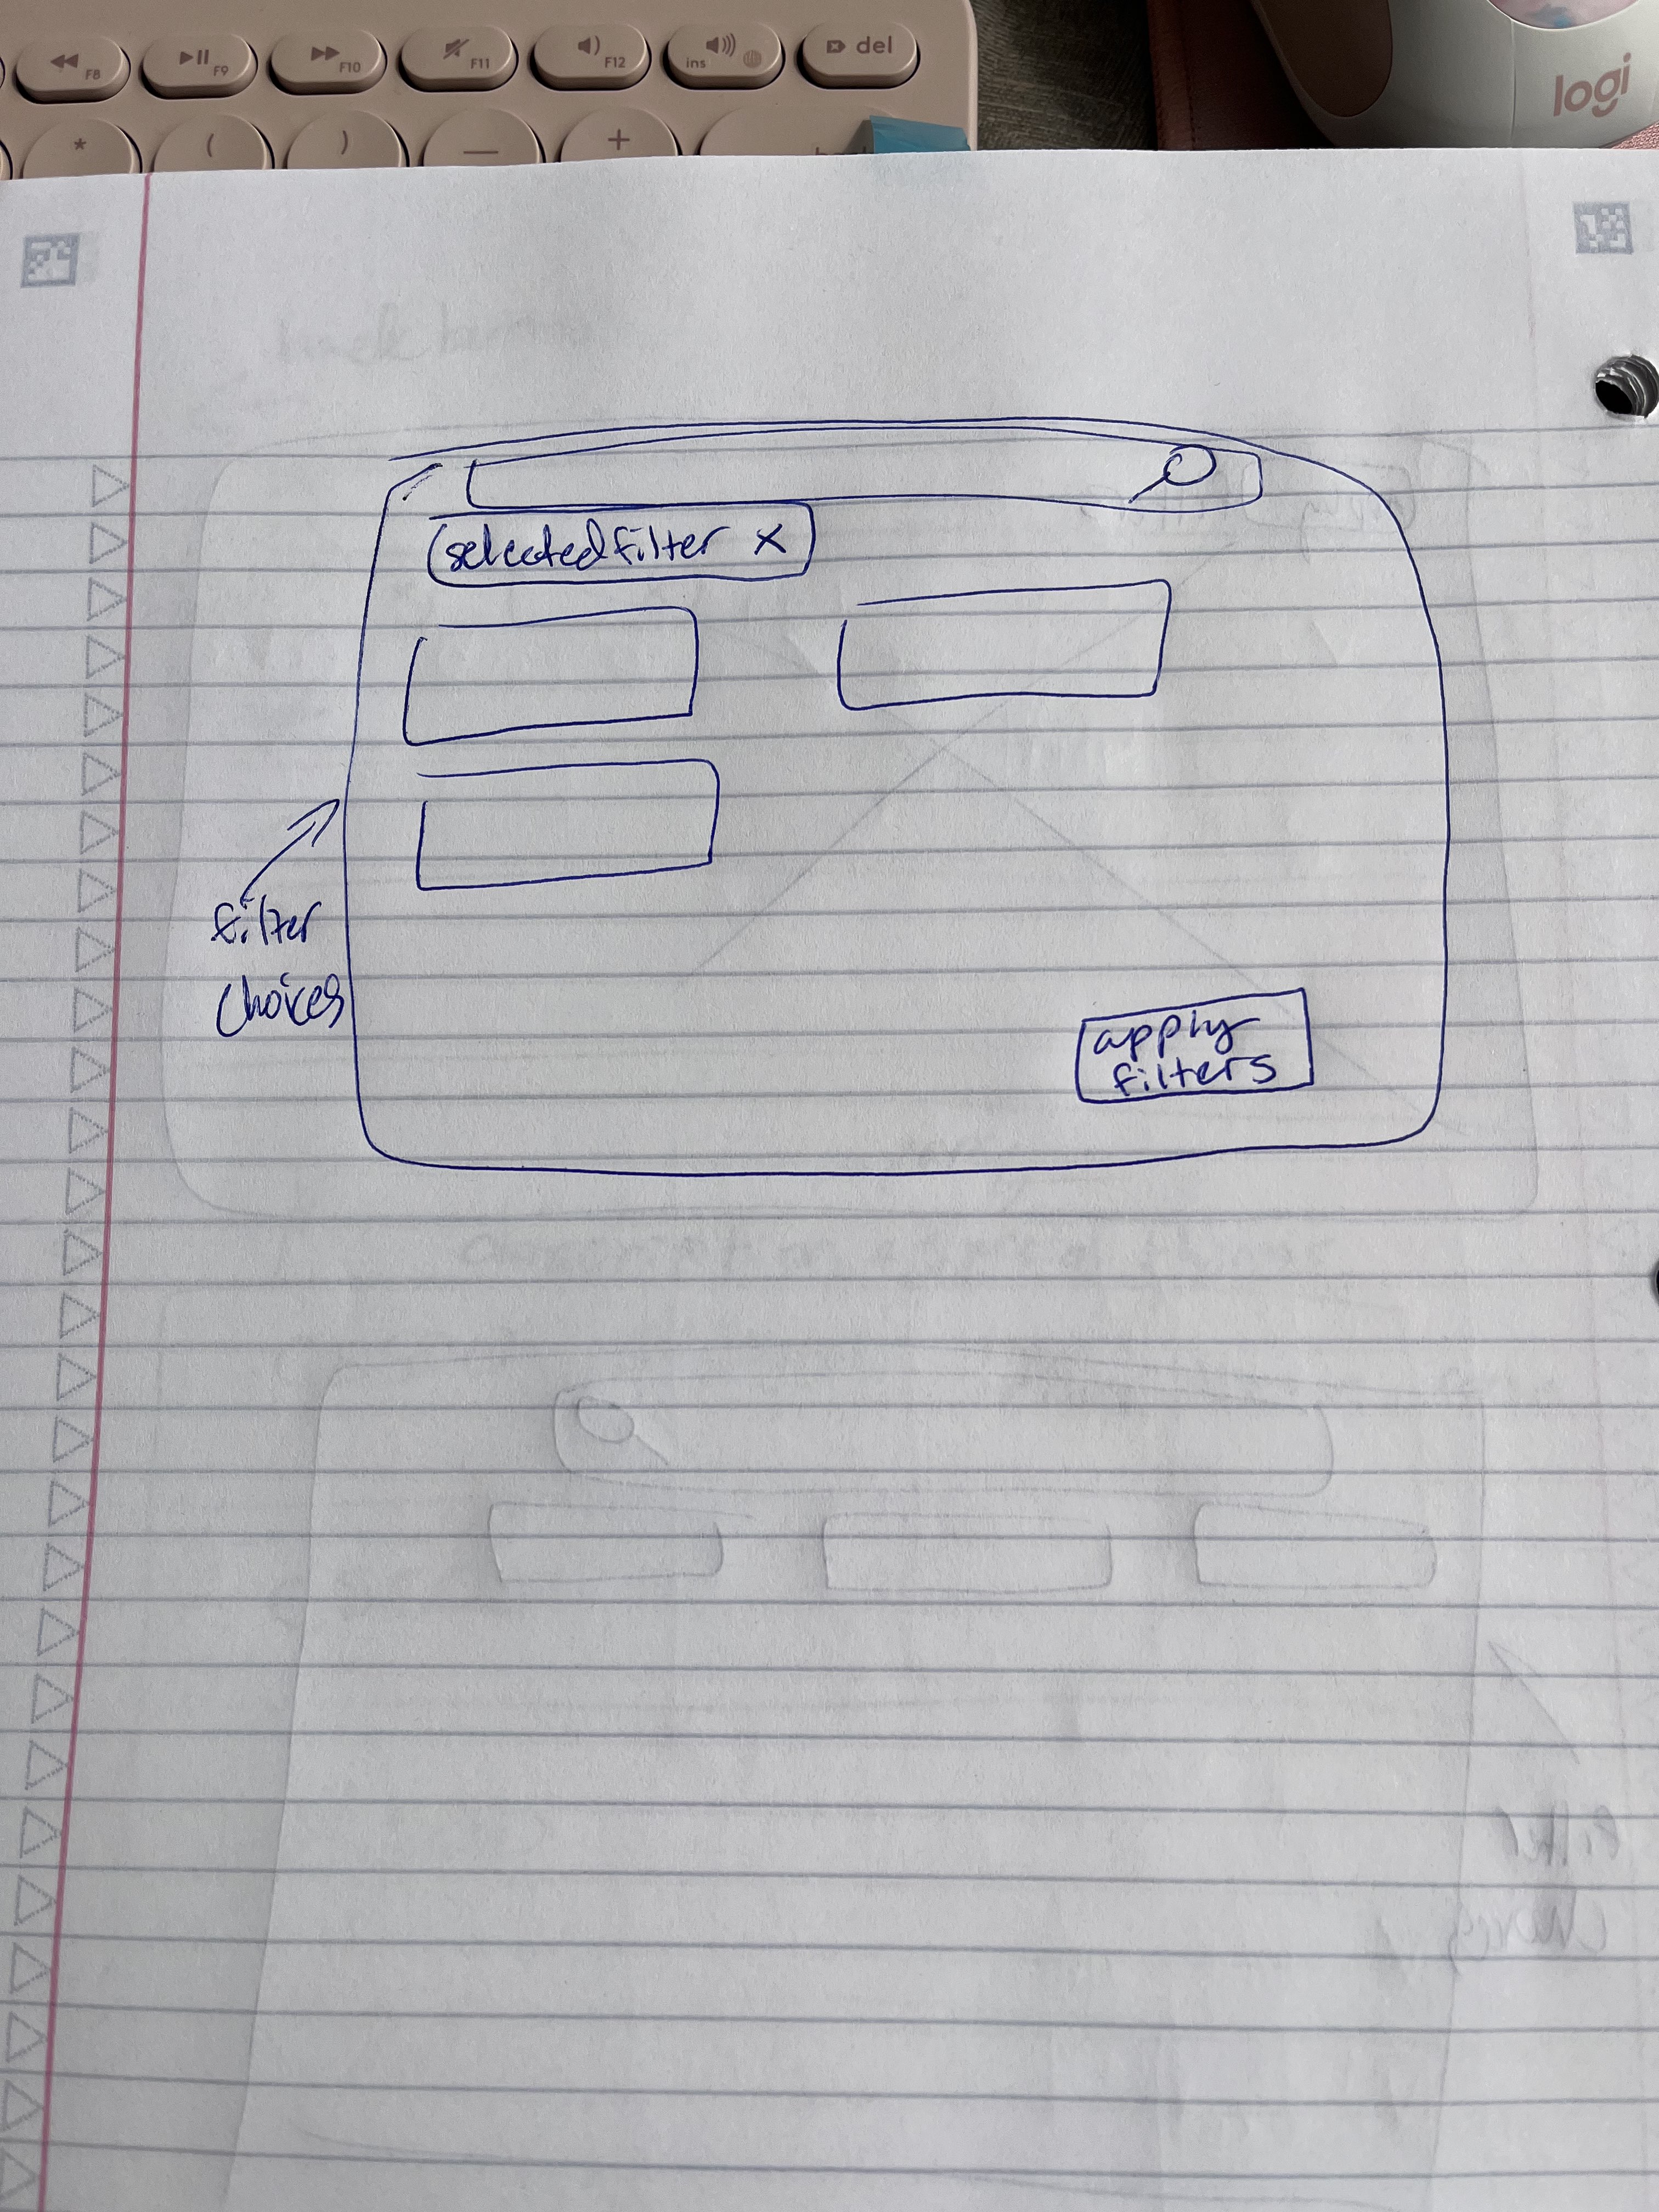 F8
F9
F10
F11
F12
ins
del
logi
*
(
)
—
+
selectedfilter x
filter
choices
apply
filters